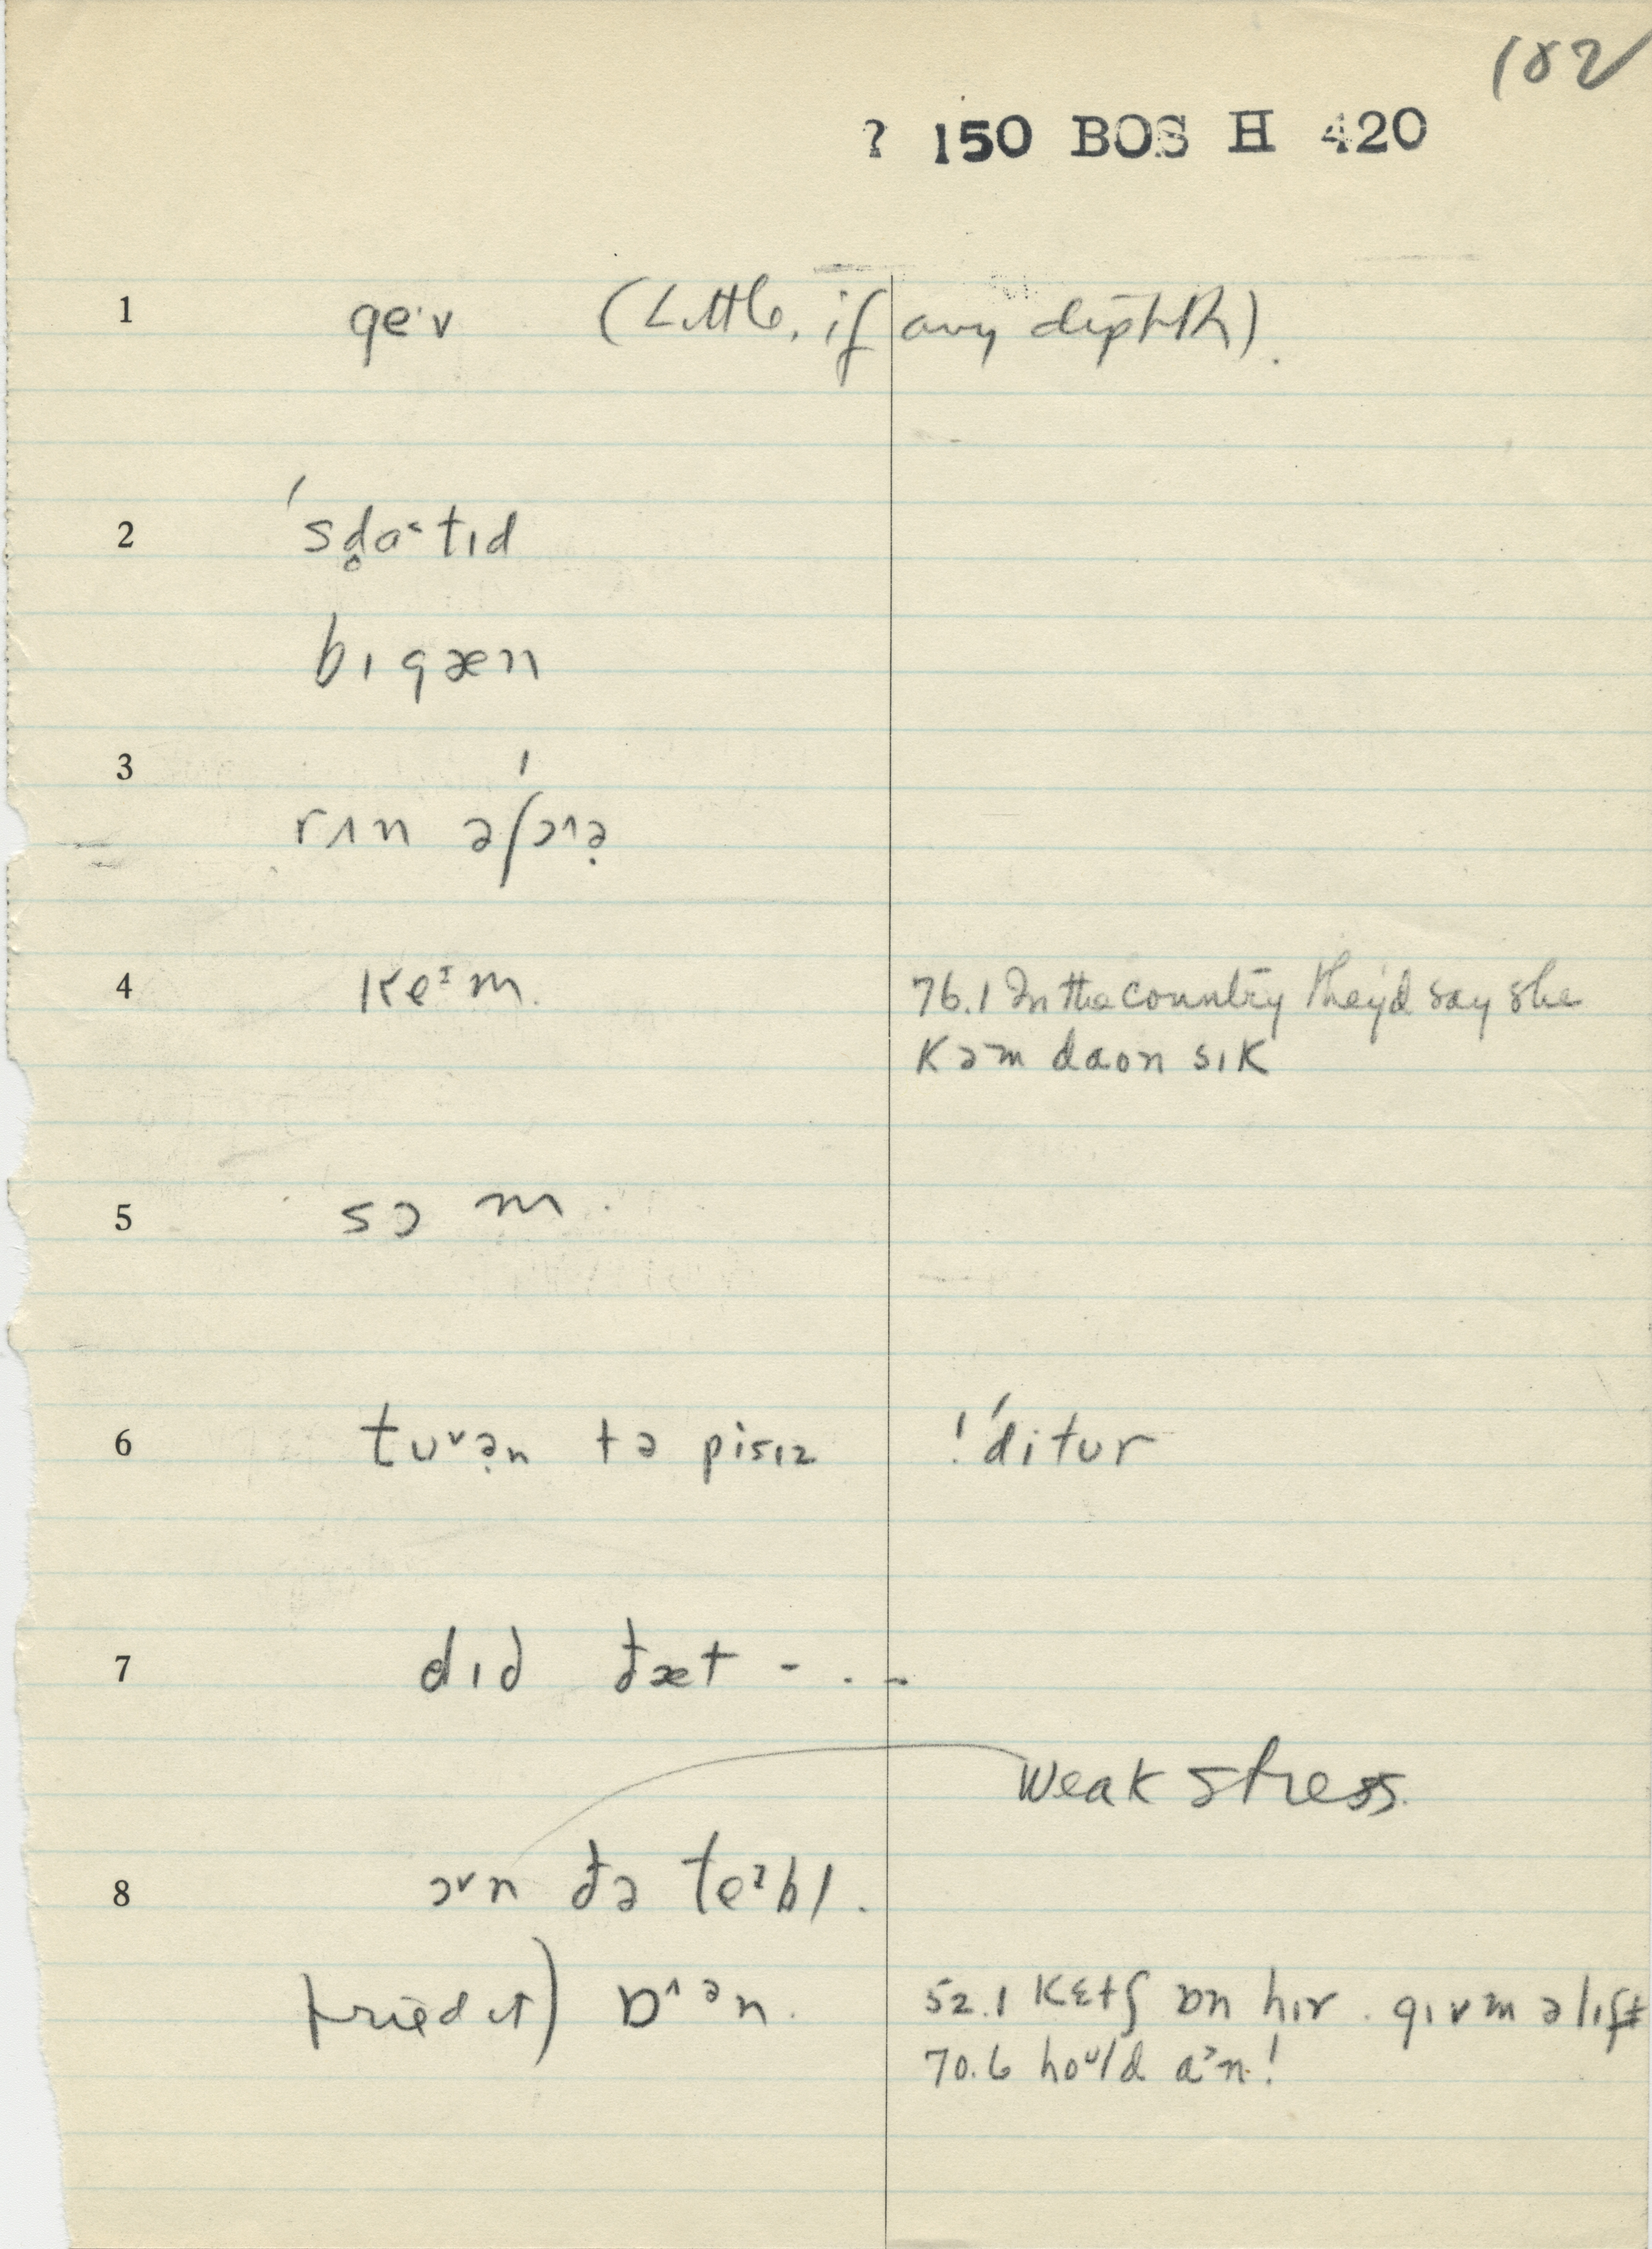 182
? 150 BOS H 420
1 geˑv (Little, if any depth).
2 ˈsd̥a˂tɪd
bɪgæn
3 rʌn əʃɔ^ə̣
4 keᶦm. 76.1 In the country they'd say she
kəm daon sɪk
5 sɔ m.
6 tuᵛə̣n tə pisɪz !ˈditur
7 dɪd ðæt - . . -
weak stress.
8 ɔᵛn ðə teᶦbl.
tried it) ɒ^ᵊn.
52.1 kɛtʃ ɒn hɪr. gɪv m ə lɪft
70.6 hoᵘld a˃n!